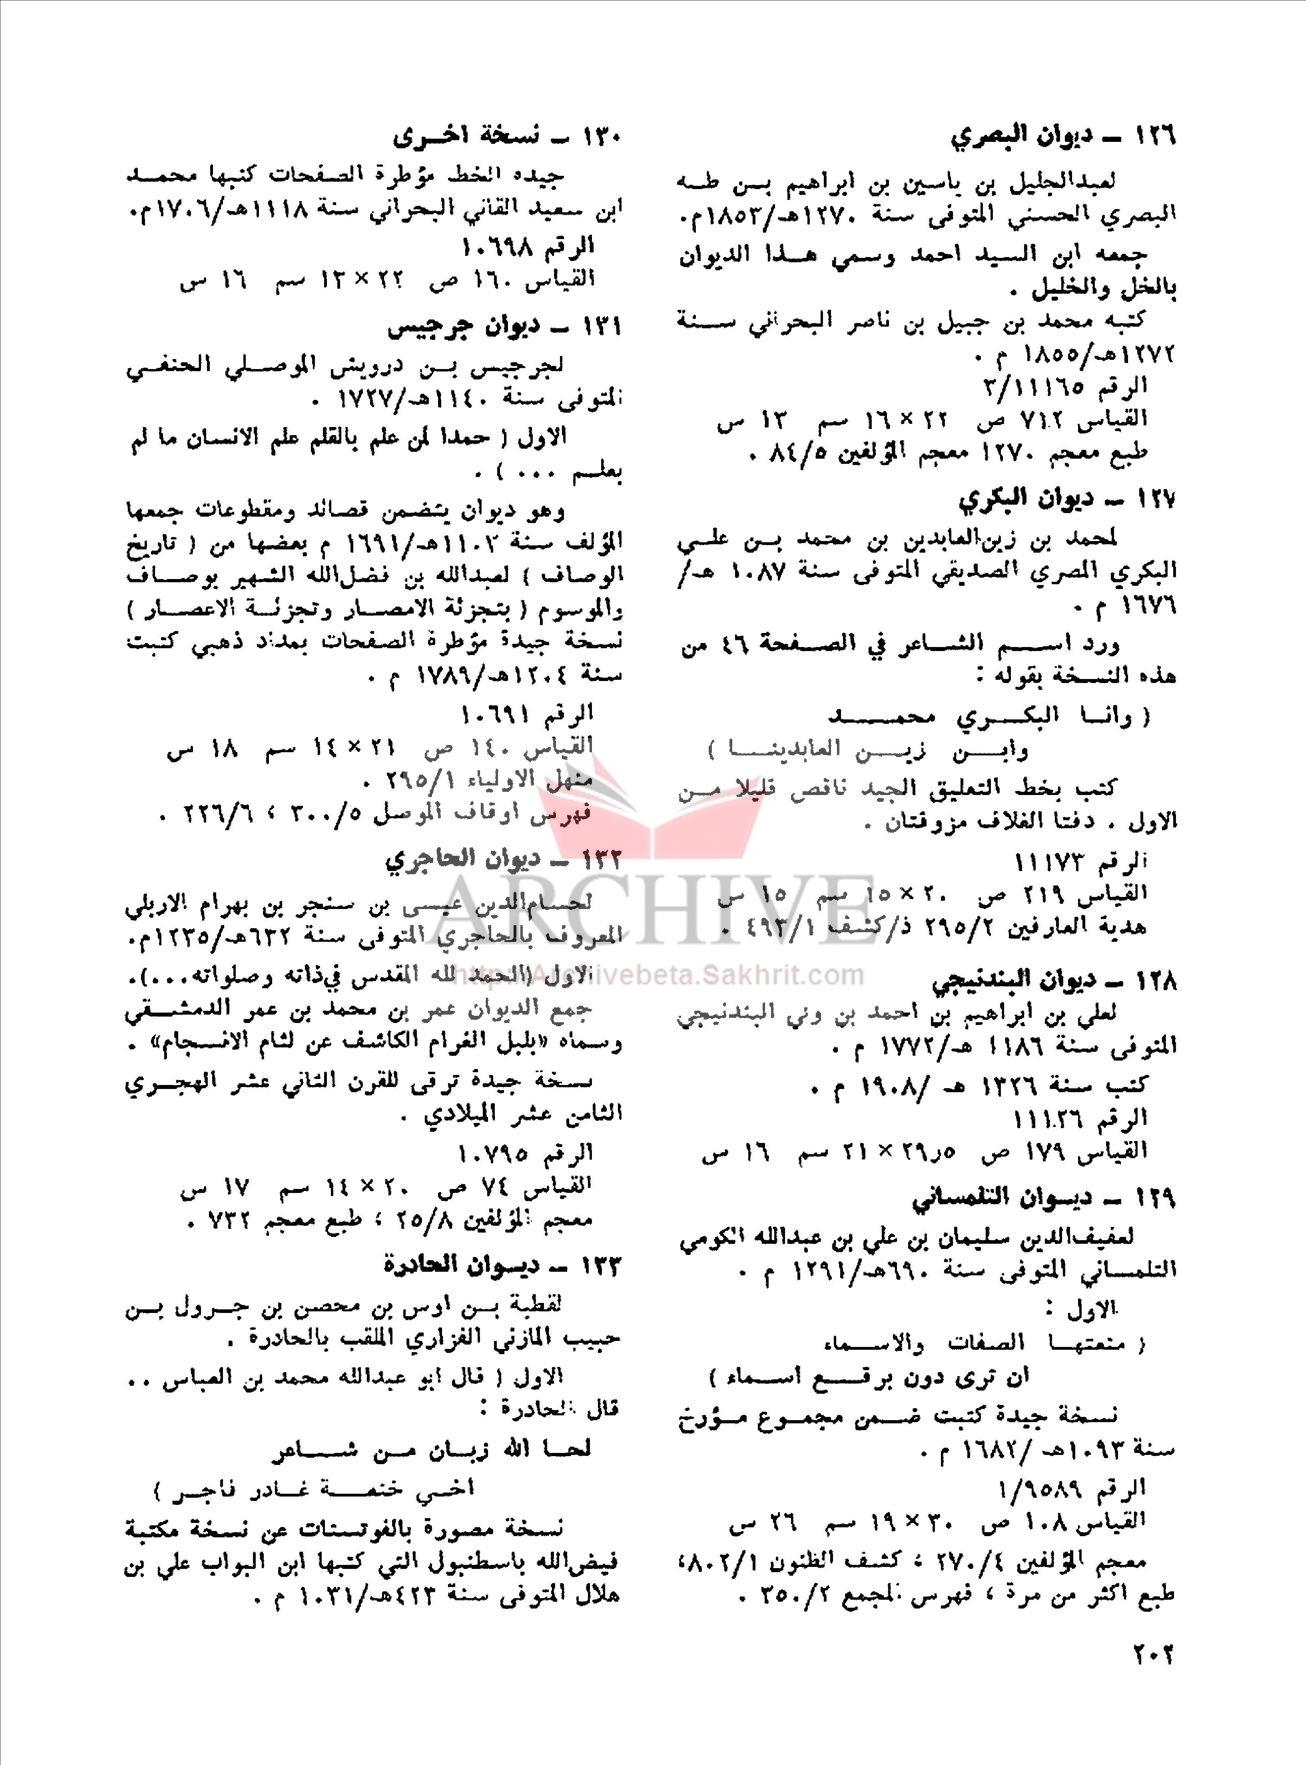 ١٢٦ ـ ديوان البصري
لعبدالجليل بن ياسين بن ابراهيم بـن طـه
البصري الحسني المتوفى سنة ١٢٧٠هـ/١٨٥٣م.
جمعه ابن السيد احمد وسمي هـذا الديوان
بالخل والخليل .
كتبه محمد بن جبيل بن ناصر البحراني سـنة
١٢٧٢هـ/١٨٥٥ م .
الرقم ٣/١١١٦٥
القياس ٧١٢ ص ٢٢×١٦ سم ١٣ س
طبع معجم ١٢٧٠ معجم المؤلفين ٨٤/٥ .
١٢٧ ـ ديوان البكري
لمحمد بن زين‌العابدين بن محمد بـن علـي
البكري المصري الصديقي المتوفى سنة ١٠٨٧ هـ/
١٦٧٦ م .
ورد اسـم الشـاعر في الصـفحة ٤٦ من
هذه النسخة بقوله :
( وانـا البكـري محمـد
وابـن زيـن العابدينـا )
كتب بخط التعليق الجيد ناقص قليلا مـن
الاول . دفتا الغلاف مزوقتان .
الرقم ١١١٧٣
القياس ٢١٩ ص ٢٠×١٥ سم ١٥ س
هدية العارفين ٢٩٥/٢ ذ/كشف ٤٩٣/١ .
١٢٨ ـ ديوان البندنيجي
لعلي بن ابراهيم بن احمد بن وني البندنيجي
المتوفى سنة ١١٨٦ هـ/١٧٧٢ م .
كتب سنة ١٣٢٦ هـ /١٩٠٨ م .
الرقم ١١١٢٦
القياس ١٧٩ ص ٢٩٫٥×٢١ سم ١٦ س
١٢٩ ـ ديـوان التلمساني
لعفيف‌الدين سليمان بن علي بن عبدالله الكومي
التلمسـاني المتوفى سنة ٦٩٠هـ/١٢٩١ م .
الاول :
( منعتهـا الصفات والاسـماء
ان ترى دون برقـع اسـماء )
نسـخة جيدة كتبت ضـمن مجمـوع مـؤرخ
سنة ١٠٩٣هـ /١٦٨٢ م .
الرقم ١/٩٥٨٩
القياس ١٠٨ ص ٣٠×١٩ سم ٢٦ س
معجم المؤلفين ٢٧٠/٤ ؛ كشف الظنون ٨٠٢/١؛
طبع اكثر من مرة ؛ فهرس المجمع ٣٥٠/٢ .
١٣٠ ـ نسخة اخـرى
جيده الخط مؤطرة الصفحات كتبها محمـد
ابن سعيد القاني البحراني سنة ١١١٨هـ/١٧٠٦م.
الرقم ١٠٦٩٨
القياس ١٦٠ ص ٢٢×١٣ سم ١٦ س
١٣١ ـ ديوان جرجيس
لجرجيس بـن درويش الموصـلي الحنفـي
المتوفى سنة ١١٤٠هـ/١٧٢٧ .
الاول ( حمدا لمن علم بالقلم علم الانسان ما لم
يعلـم ... ) .
وهو ديوان يتضمن قصائد ومقطوعات جمعها
المؤلف سنة ١١٠٣هـ/١٦٩١ م بعضها من ( تاريخ
الوصاف ) لعبدالله بن فضل‌الله الشهير بوصـاف
والموسوم ( بتجزئة الامصـار وتجزئـة الاعصـار )
نسخة جيدة مؤطرة الصفحات بمداد ذهبي كتبت
سنة ١٢٠٤هـ/١٧٨٩ م .
الرقم ١٠٦٩١
القياس ١٤٠ ص ٢١×١٤ سم ١٨ س
منهل الاولياء ٢٩٥/١ .
فهرس اوقاف الموصل ٣٠٠/٥ ؛ ٢٢٦/٦ .
١٣٢ ـ ديوان الحاجري
لحسام‌الدين عيسى بن سنجر بن بهرام الاربلي
المعروف بالحاجري المتوفى سنة ٦٣٢هـ/١٢٣٥م.
الاول (الحمد لله المقدس في‌ذاته وصلواته...).
جمع الديوان عمر بن محمد بن عمر الدمشـقي
وسماه «بلبل الغرام الكاشف عن لثام الانسجام» .
نسخة جيدة ترقى للقرن الثاني عشر الهجـري
الثامن عشر الميلادي .
الرقم ١٠٧٩٥
القياس ٧٤ ص ٢٠×١٤ سم ١٧ س
معجم المؤلفين ٢٥/٨ ؛ طبع معجم ٧٣٢ .
١٣٣ ـ ديـوان الحادرة
لقطبة بـن اوس بن محصن بن جـرول بـن
حبيب المازني الفزاري الملقب بالحادرة .
الاول ( قال ابو عبدالله محمد بن العباس ..
قال الحادرة :
لحـا الله زبـان مـن شـاعر
اخـي خنعـة غـادر فاجـر )
نسخة مصورة بالفوتستات عن نسخة مكتبة
فيض‌الله باسطنبول التي كتبها ابن البواب علي بن
هلال المتوفى سنة ٤٢٣هـ/١٠٣١ م .
٢٠٢
ARCHIVE
http://Archivebeta.Sakhrit.com